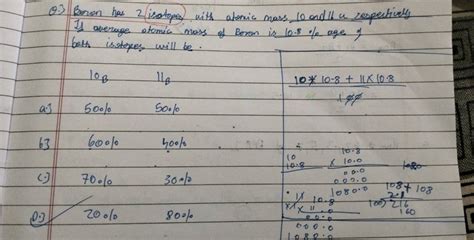 Q:) Boron has 2 isotopes with atomic mass 10 and 11 u respectively
If average atomic mass of Boron is 10.8 % age of
both isotopes will be.
10B 11B
a:) 50% 50%
b:) 60% 40%
c:) 70% 30%
D:) 20% 80%
10 × 10.8 + 11 × 10.8
100
10.8
× 10.0
1080.0
108 + 108
216